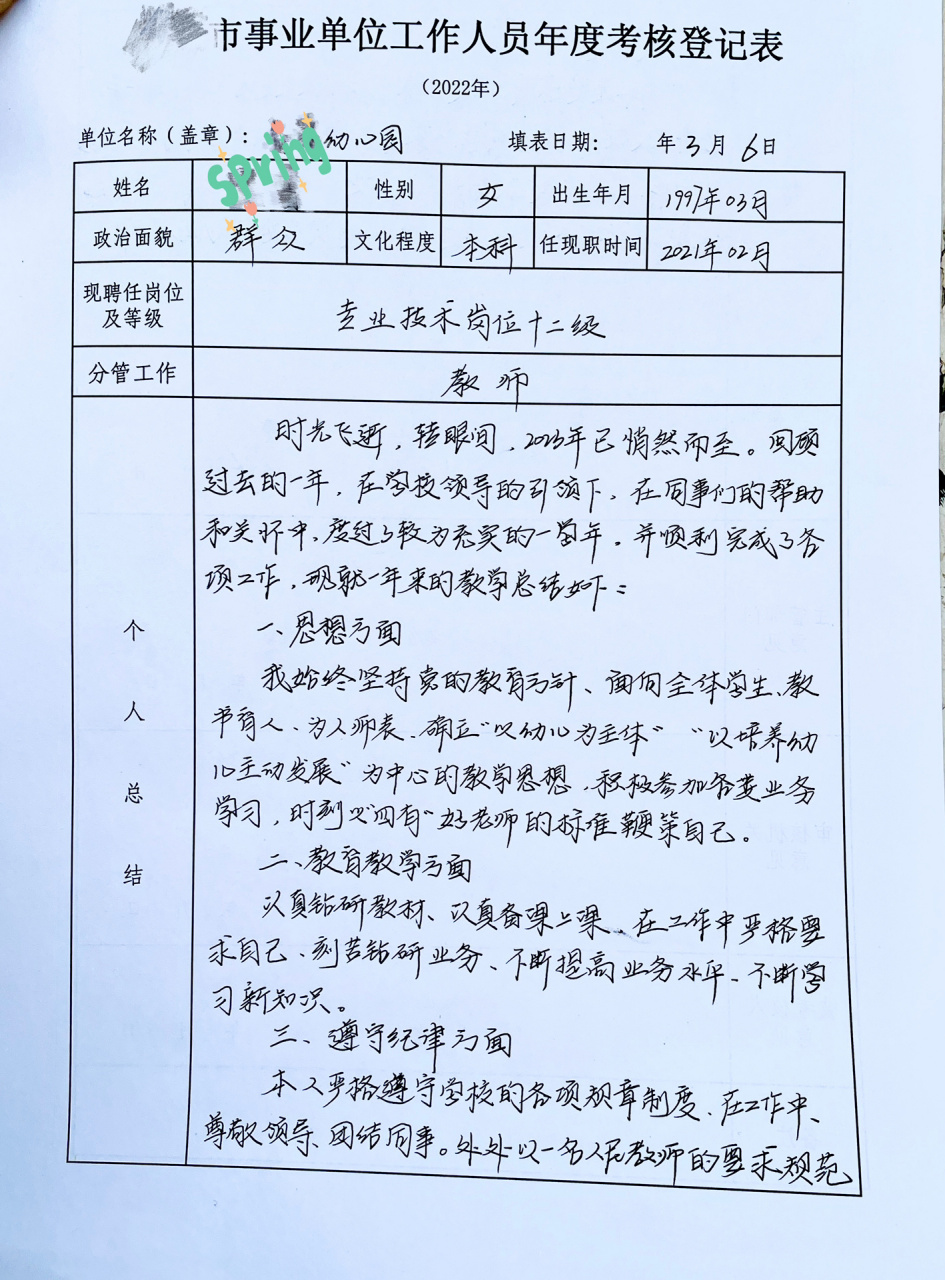 市事业单位工作人员年度考核登记表
（2022年）
单位名称（盖章）： 幼儿园 填表日期： 年3月6日
spring
姓名 性别 女 出生年月 1997年03月
政治面貌 群众 文化程度 本科 任现职时间 2021年02月
现聘任岗位及等级 专业技术岗位十二级
分管工作 教师
个人总结
时光飞逝，转眼间，2023年已悄然而至。回顾
过去的一年，在学校领导的引领下，在同事们的帮助
和关怀中，度过了较为充实的一学年。并顺利完成了各
项工作，现就一年来的教学总结如下：
一、思想方面
我始终坚持党的教育方针、面向全体学生、教
书育人、为人师表、确立"以幼儿为主体" "以培养幼
儿主动发展"为中心的教学思想，积极参加各类业务
学习，时刻以"四有"好老师的标准鞭策自己。
二、教育教学方面
认真钻研教材、认真备课上课、在工作中严格要
求自己、刻苦钻研业务、不断提高业务水平、不断学
习新知识。
三、遵守纪律方面
本人严格遵守学校的各项规章制度、在工作中、
尊敬领导、团结同事。处处以一名人民教师的要求规范